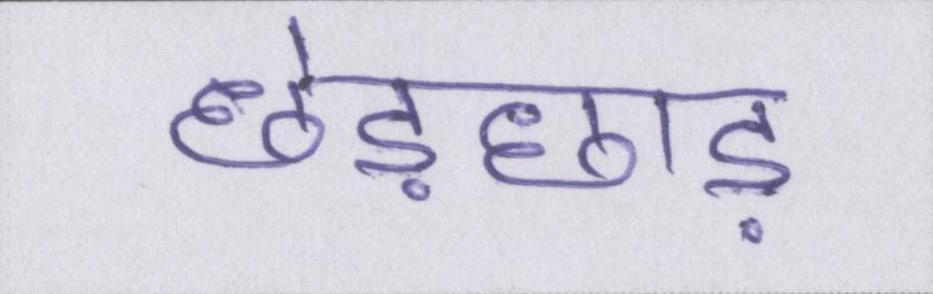 छेड़छाड़